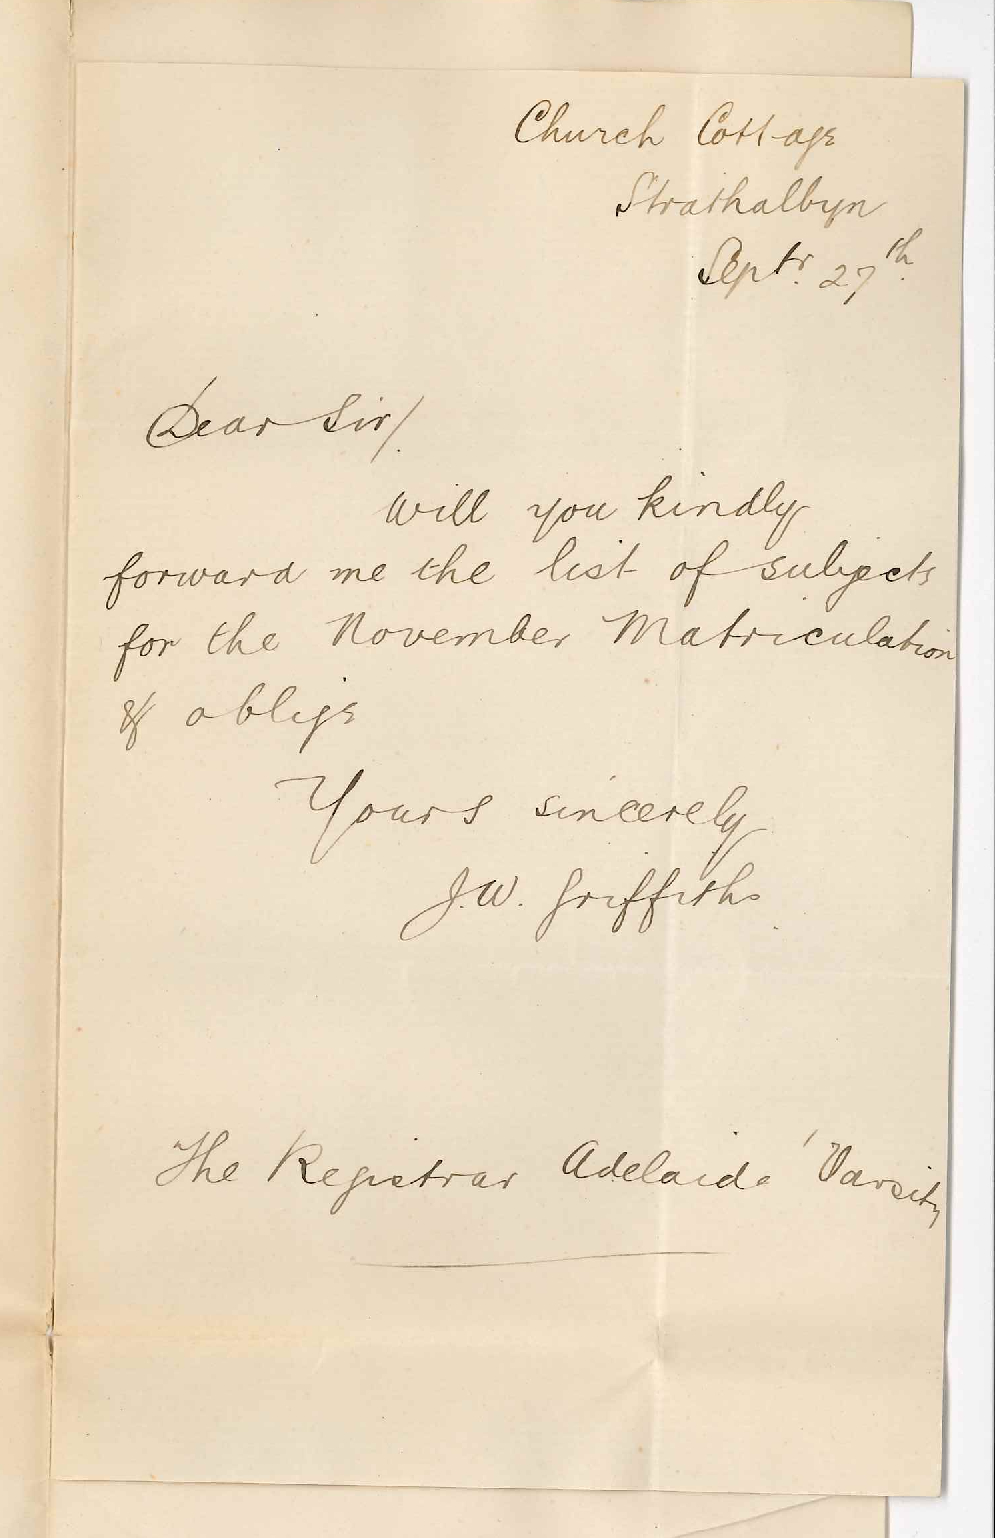 Church Cottage
Strathalbyn
Septr. 27th.
Dear Sir/
Will you kindly
forward me the list of subjects
for the November Matriculation
& oblige
Yours sincerely
J.W. Griffiths
The Registrar Adelaide 'Varsity